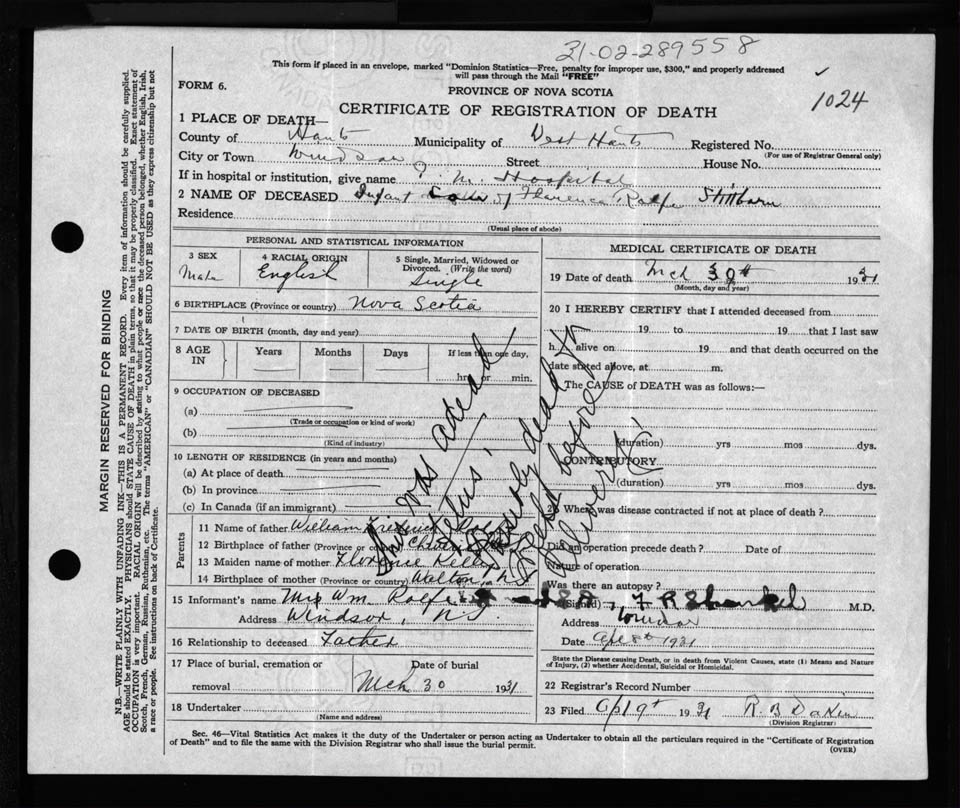 31-02-289558
This form if placed in an envelope, marked "Dominion Statistics—Free, penalty for improper use, $300," and properly addressed
will pass through the Mail "FREE"
FORM 6.
PROVINCE OF NOVA SCOTIA
1024
CERTIFICATE OF REGISTRATION OF DEATH
1 PLACE OF DEATH—
County of Hants Municipality of West Hants Registered No.
(For use of Registrar General only)
City or Town Windsor Street House No.
If in hospital or institution, give name P. M. Hospital
2 NAME OF DECEASED Infant of Florence Rolfe Stillborn
Residence
(Usual place of abode)
PERSONAL AND STATISTICAL INFORMATION
3 SEX
Male
4 RACIAL ORIGIN
English
5 Single, Married, Widowed or
Divorced. (Write the word)
Single
6 BIRTHPLACE (Province or country) Nova Scotia
7 DATE OF BIRTH (month, day and year)
8 AGE IN
Years Months Days If less than one day,
hrs. or min.
9 OCCUPATION OF DECEASED
(a)
(Trade or occupation or kind of work)
(b)
(Kind of industry)
10 LENGTH OF RESIDENCE (in years and months)
(a) At place of death
(b) In province
(c) In Canada (if an immigrant)
Parents
11 Name of father William Frederick
12 Birthplace of father (Province or country)
13 Maiden name of mother Florence Kelley
14 Birthplace of mother (Province or country) Walton, N.S.
15 Informant's name Mrs Wm. Rolfe
Address Windsor, N.S.
16 Relationship to deceased Father
17 Place of burial, cremation or
removal
Date of burial
Mch 30 1931
18 Undertaker
(Name and address)
MEDICAL CERTIFICATE OF DEATH
19 Date of death Mch 30th 1931
(Month, day and year)
20 I HEREBY CERTIFY that I attended deceased from
19 to 19 that I last saw
h alive on 19 and that death occurred on the
date stated above, at m.
The CAUSE of DEATH was as follows:—
(duration) yrs mos dys.
CONTRIBUTORY
(duration) yrs mos dys.
21 Where was disease contracted if not at place of death?
Did an operation precede death? Date of
Nature of operation
Was there an autopsy?
(Signed) F R Shankel M.D.
Address Windsor
Date Apl 8th 1931
State the Disease causing Death, or in death from Violent Causes, state (1) Means and Nature
of Injury, (2) whether Accidental, Suicidal or Homicidal.
22 Registrar's Record Number
23 Filed Apl 9th 1931 R B Dakin
(Division Registrar)
This was a dead
fetus.
Possibly dead for
a week before
delivery!
Sec. 46—Vital Statistics Act makes it the duty of the Undertaker or person acting as Undertaker to obtain all the particulars required in the "Certificate of Registration
of Death" and to file the same with the Division Registrar who shall issue the burial permit.
(OVER)
MARGIN RESERVED FOR BINDING
N.B.—WRITE PLAINLY WITH UNFADING INK—THIS IS A PERMANENT RECORD. Every item of information should be carefully supplied.
AGE should be stated EXACTLY. PHYSICIANS should STATE CAUSE OF DEATH in plain terms, so that it may be properly classified. Exact statement of
OCCUPATION is very important. RACIAL ORIGIN will be described by stating to what people or race the deceased person belonged, whether English, Irish,
Scotch, French, German, Russian, Ruthenian, etc. The terms "AMERICAN" or "CANADIAN" SHOULD NOT BE USED as they express citizenship but not
a race or people. See instructions on back of Certificate.